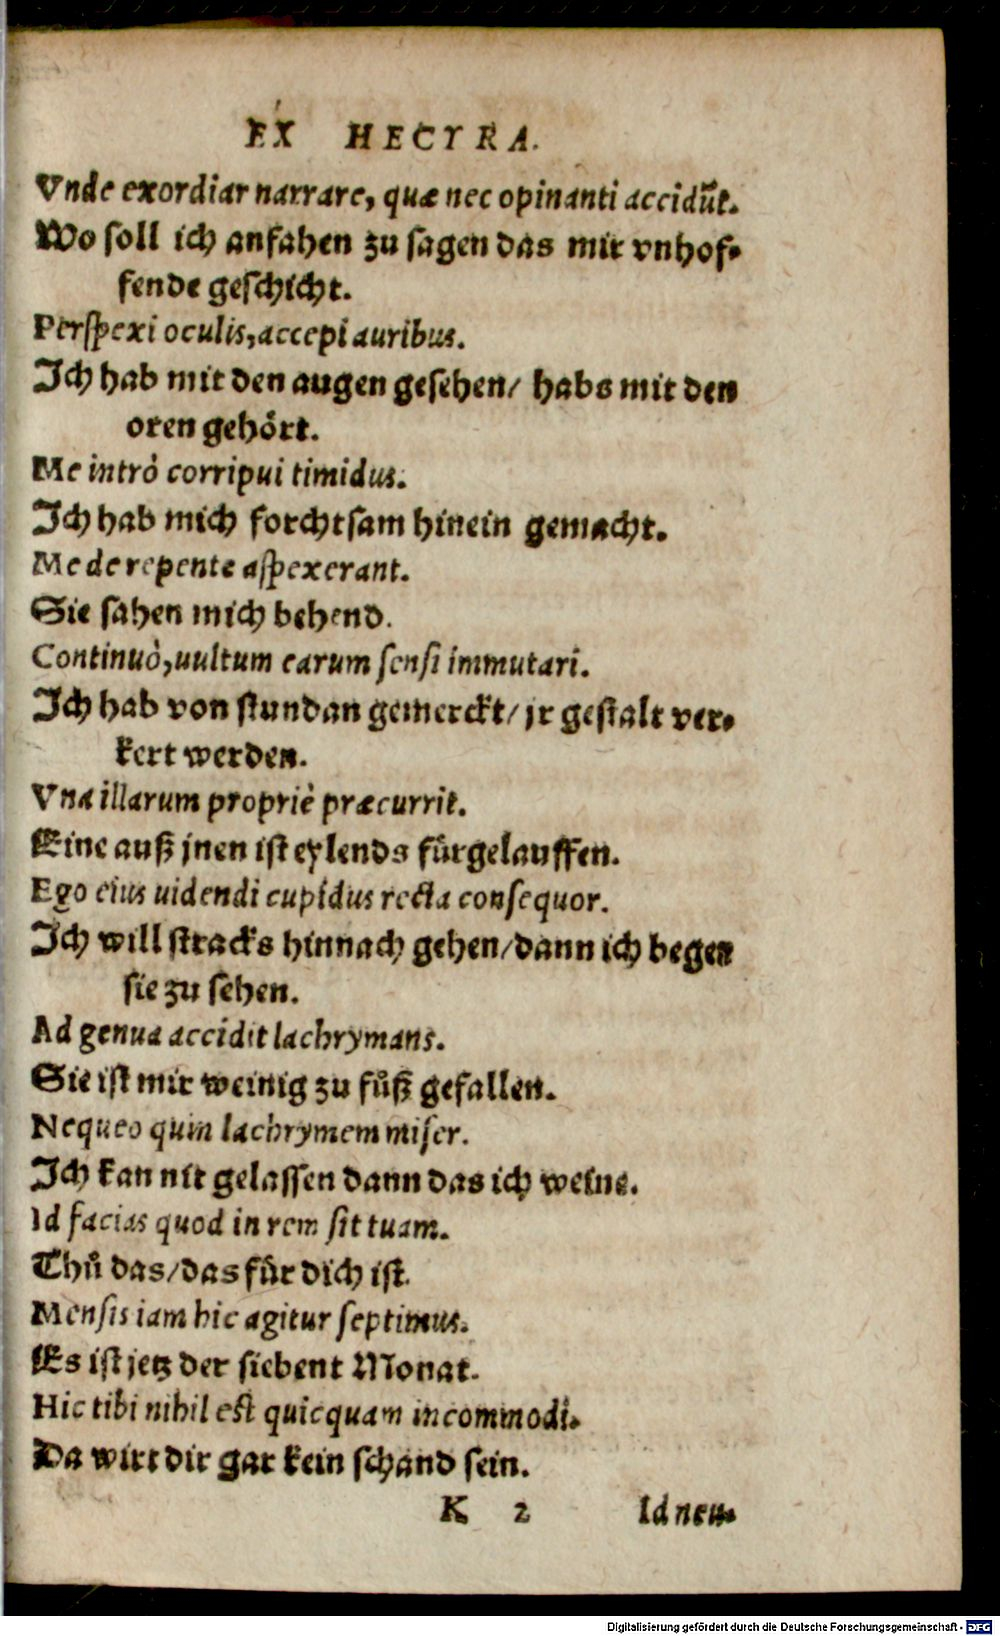 EX HECYRA.
Vnde exordiar narrare, quæ nec opinanti accidūt.
Wo soll ich anfahen zu sagen das mir vnhof-
fende geschicht.
Perspexi oculis, accepi auribus.
Ich hab mit den augen gesehen/ habs mit den
oren gehört.
Me intrò corripui timidus.
Ich hab mich forchtsam hinein gemacht.
Me de repente aspexerant.
Sie sahen mich behend.
Continuò, uultum earum sensi immutari.
Ich hab von stundan gemerckt/ jr gestalt ver-
kert werden.
Vna illarum propriè præcurrit.
Eine auß jnen ist eylends fürgelauffen.
Ego eius uidendi cupidus recta consequor.
Ich will stracks hinnach gehen/dann ich beger
sie zu sehen.
Ad genua accidit lachrymans.
Sie ist mir weinig zu fůß gefallen.
Nequeo quin lachrymem miser.
Ich kan nit gelassen dann das ich weine.
Id facias quod in rem sit tuam.
Thů das/das für dich ist.
Mensis iam hic agitur septimus.
Es ist jetz der siebent Monat.
Hic tibi nihil est quicquam incommodi.
Da wirt dir gar kein schand sein.
K 2 Id neu-
Digitalisierung gefördert durch die Deutsche Forschungsgemeinschaft - DFG